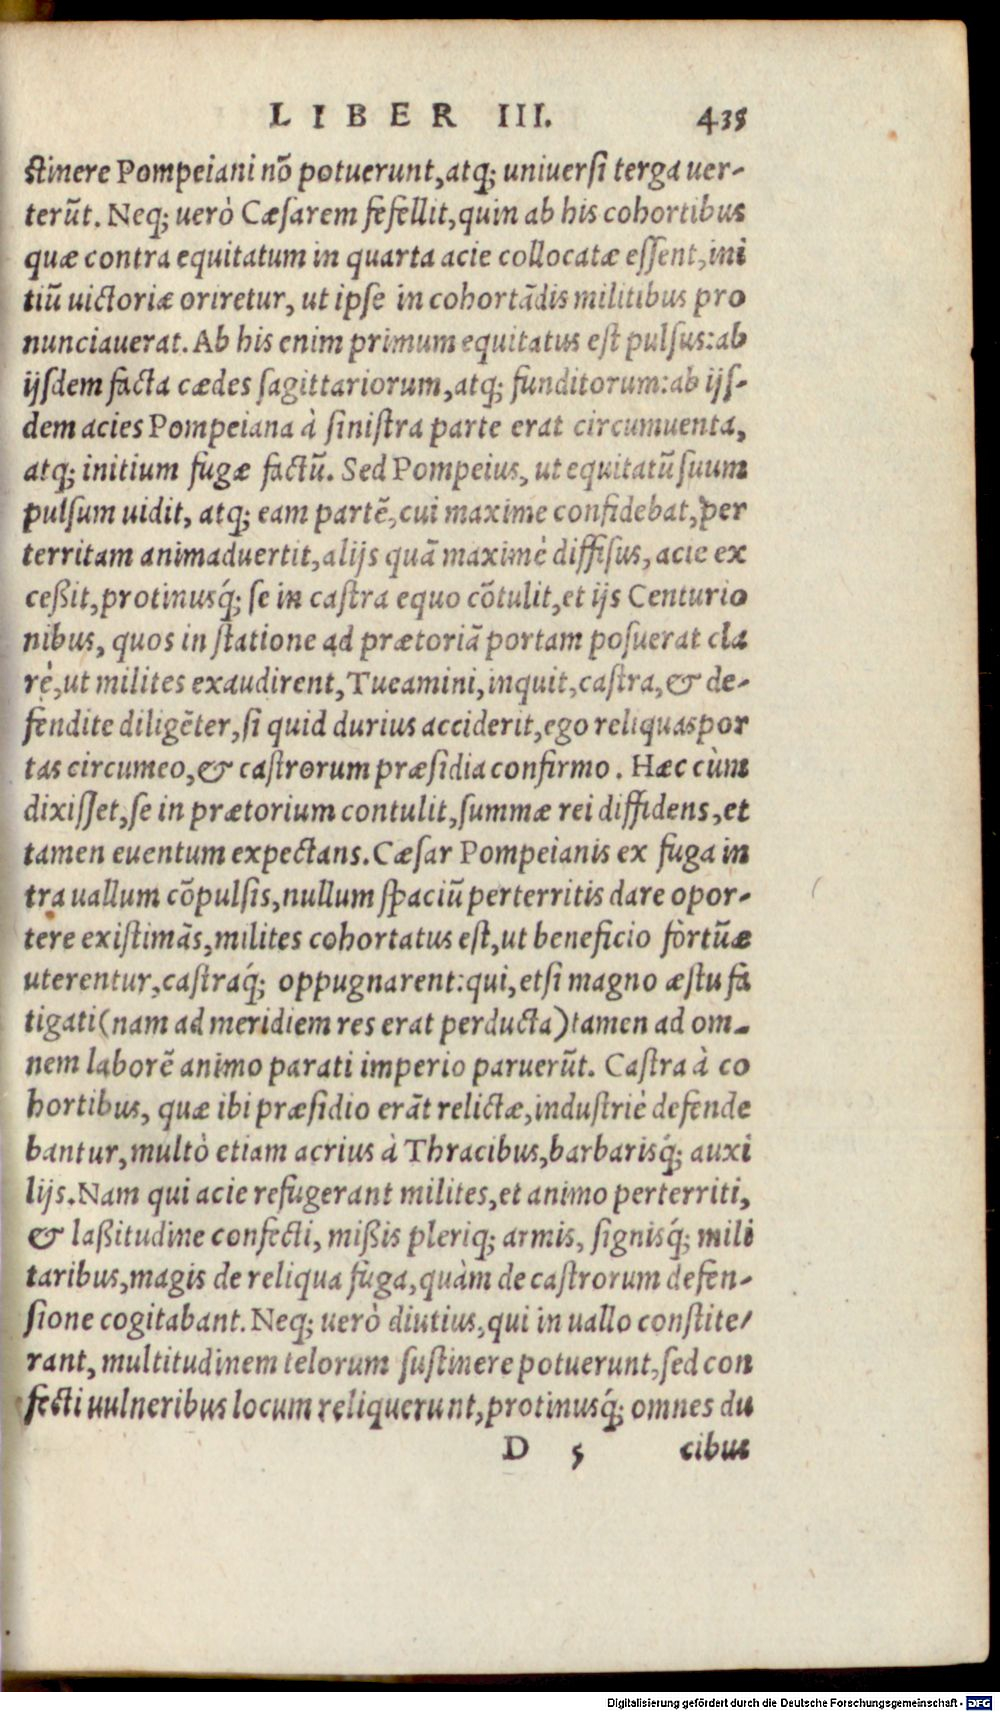 LIBER III. 435
stinere Pompeiani nõ potuerunt, atq; universi terga uer-
terũt. Neq; uerò Cæsarem fefellit, quin ab his cohortibus
quæ contra equitatum in quarta acie collocatæ essent, ini
tiũ uictoriæ oriretur, ut ipse in cohortãdis militibus pro
nunciauerat. Ab his enim primum equitatus est pulsus: ab
ijsdem facta cædes sagittariorum, atq; funditorum: ab ijs-
dem acies Pompeiana à sinistra parte erat circumuenta,
atq; initium fugæ factũ. Sed Pompeius, ut equitatũ suum
pulsum uidit, atq; eam partẽ, cui maxime confidebat, per
territam animaduertit, alijs quã maximè diffisus, acie ex
ceßit, protinusq́; se in castra equo cõtulit, et ijs Centurio
nibus, quos in statione ad prætoriã portam posuerat cla
rè, ut milites exaudirent, Tueamini, inquit, castra, & de-
fendite diligẽter, si quid durius acciderit, ego reliquas por
tas circumeo, & castrorum præsidia confirmo. Hæc cùm
dixisset, se in prætorium contulit, summæ rei diffidens, et
tamen euentum expectans. Cæsar Pompeianis ex fuga in
tra uallum cõpulsis, nullum spaciũ perterritis dare opor-
tere existimãs, milites cohortatus est, ut beneficio fortũæ
uterentur, castraq́; oppugnarent: qui, etsi magno æstu fa
tigati (nam ad meridiem res erat perducta) tamen ad om-
nem laborẽ animo parati imperio paruerũt. Castra à co
hortibus, quæ ibi præsidio erãt relictæ, industriè defende
bantur, multò etiam acrius à Thracibus, barbarisq́; auxi
lijs. Nam qui acie refugerant milites, et animo perterriti,
& laßitudine confecti, mißis pleriq; armis, signisq́; mili
taribus, magis de reliqua fuga, quàm de castrorum defen-
sione cogitabant. Neq; uerò diutius, qui in uallo constite/
rant, multitudinem telorum sustinere potuerunt, sed con
fecti uulneribus locum reliquerunt, protinusq́; omnes du
D 5 cibus
Digitalisierung gefördert durch die Deutsche Forschungsgemeinschaft - DFG